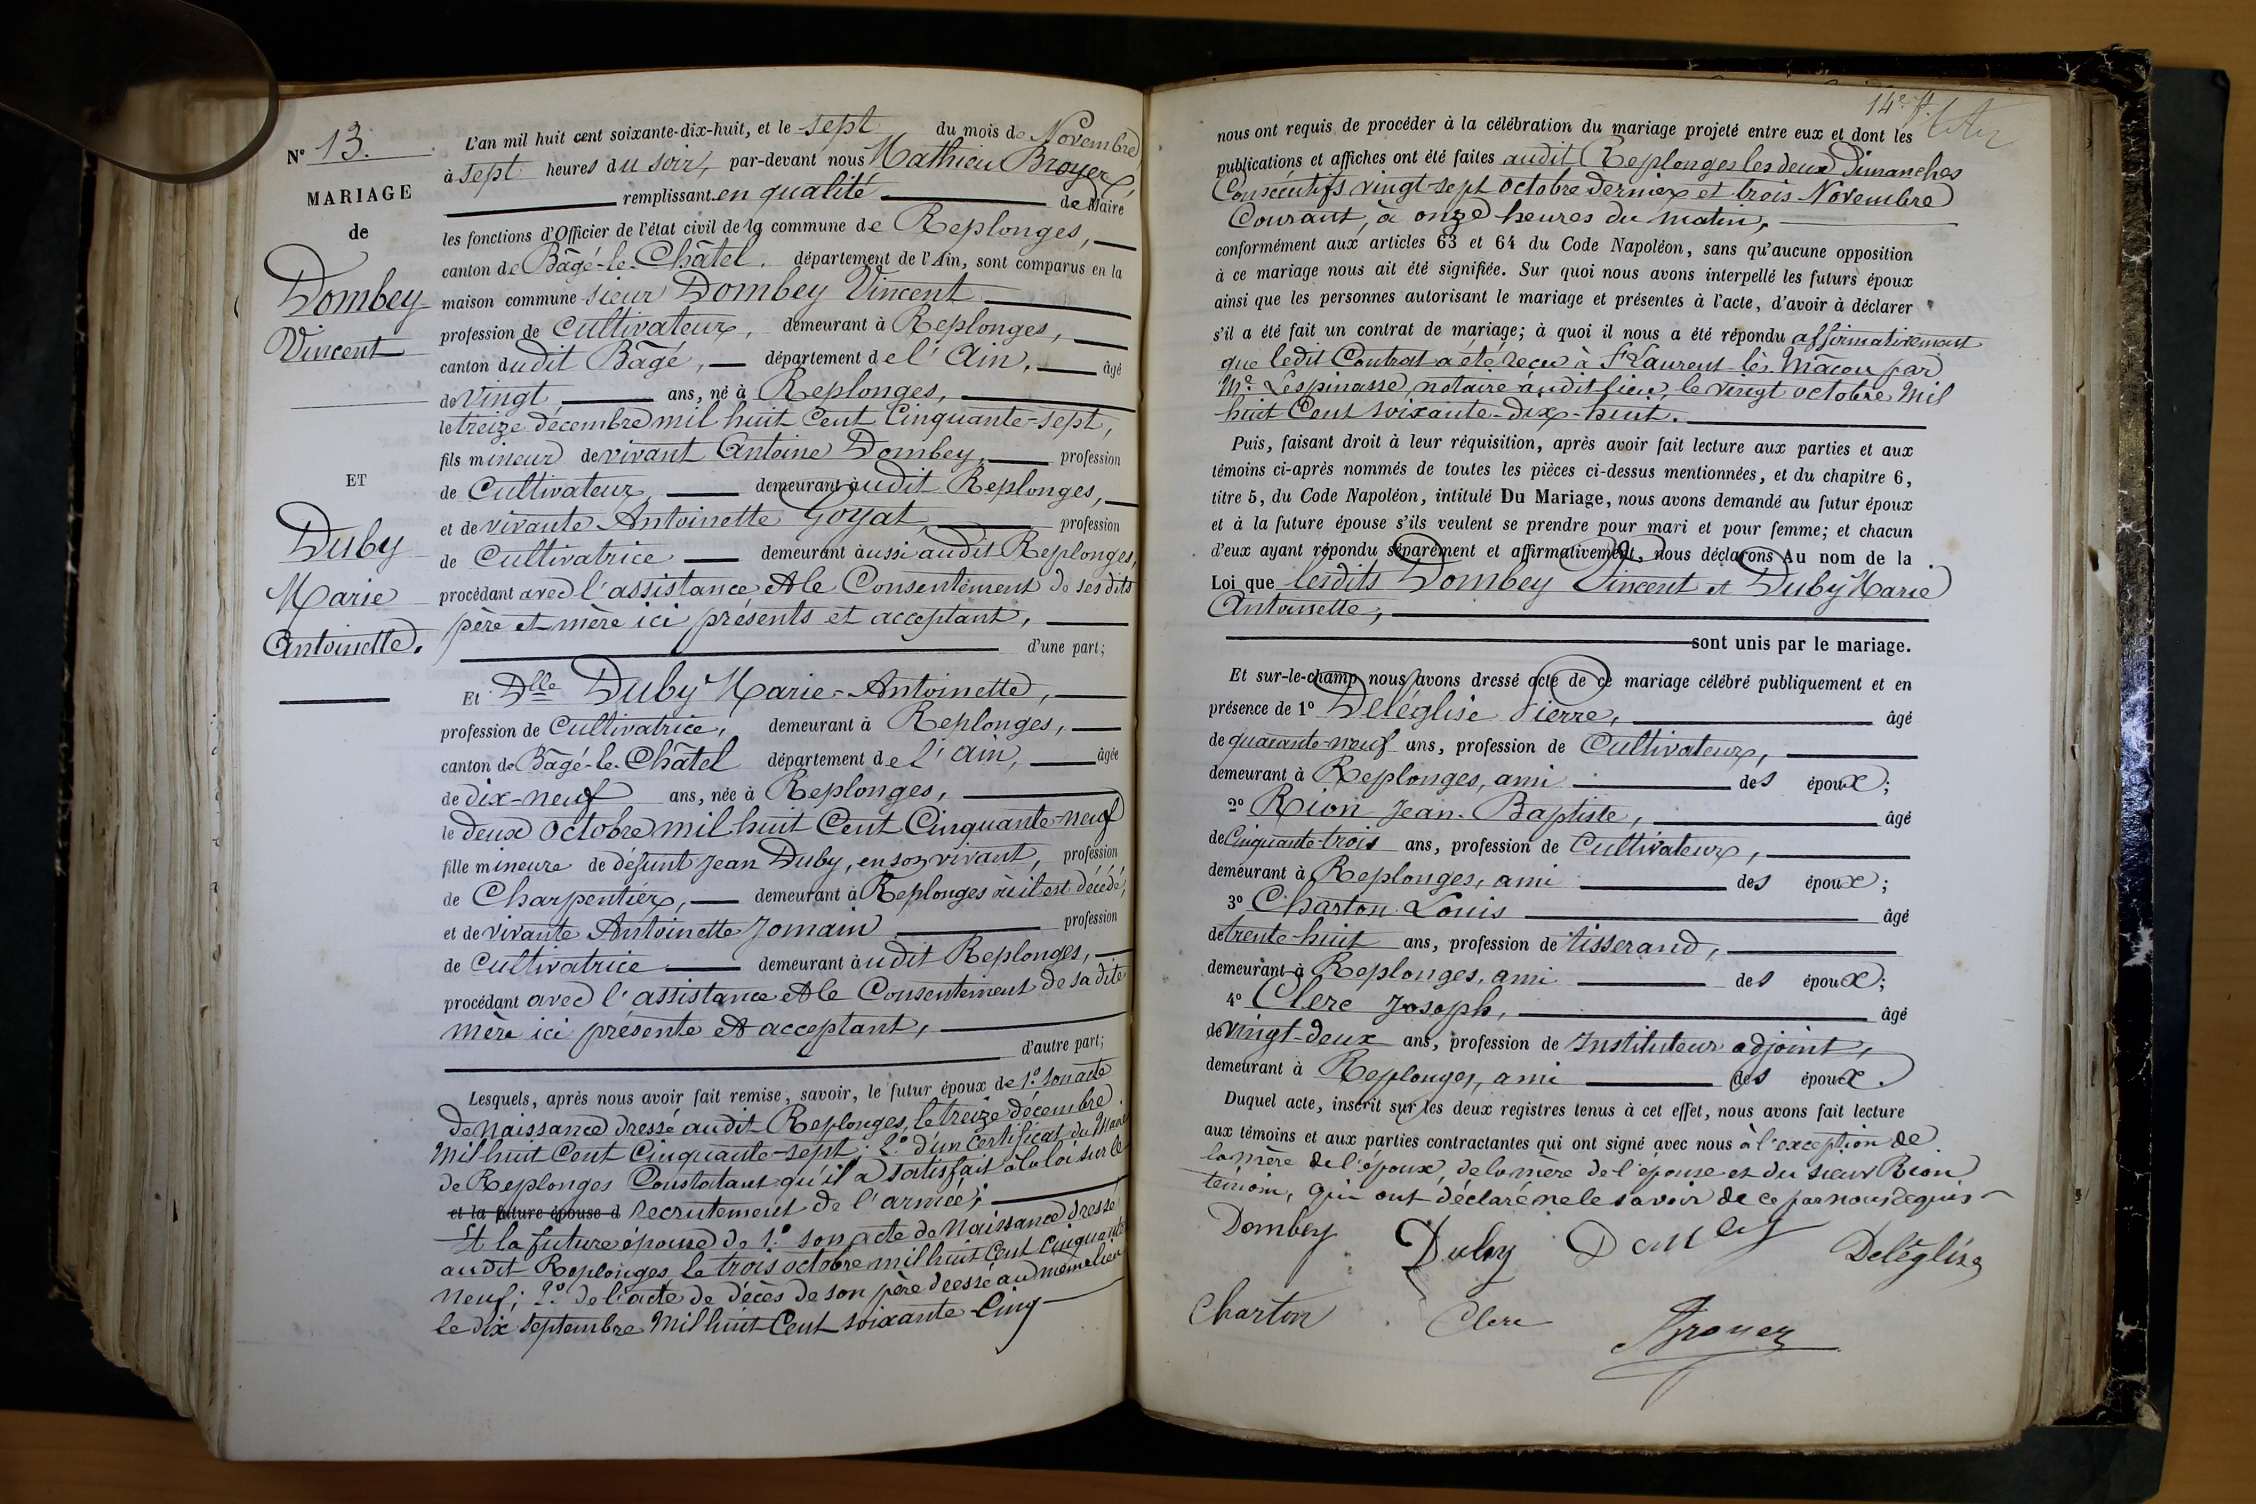 N° 13.
MARIAGE
de
Dombey
Vincent
ET
Duby
Marie
Antoinette.
L'an mil huit cent soixante-dix-huit, et le sept du mois de Novembre
à sept heures du soir, par-devant nous Mathieu Broyer,
remplissant en qualité de Maire
les fonctions d'Officier de l'état civil de la commune de Replonges,
canton de Bâgé-le-Châtel, département de l'Ain, sont comparus en la
maison commune sieur Dombey Vincent
profession de Cultivateur, demeurant à Replonges,
canton dudit Bâgé, département de l'Ain, âgé
de vingt ans, né à Replonges,
le treize décembre mil huit Cent Cinquante-sept,
fils mineur de vivant Antoine Dombey, profession
de Cultivateur, demeurant audit Replonges,
et de vivante Antoinette Goyat, profession
de Cultivatrice demeurant aussi audit Replonges,
procédant avec l'assistance et le Consentement de ses dits
père et mère ici présents et acceptant,
d'une part;
Et Dlle Duby Marie-Antoinette,
profession de Cultivatrice, demeurant à Replonges,
canton de Bâgé-le-Châtel département de l'Ain, âgée
de dix-neuf ans, née à Replonges,
le deux Octobre mil huit Cent Cinquante-neuf
fille mineure de défunt Jean Duby, en son vivant, profession
de Charpentier, demeurant à Replonges où il est décédé,
et de vivante Antoinette Jomain profession
de Cultivatrice demeurant audit Replonges,
procédant avec l'assistance et le Consentement de sa dite
mère ici présente et acceptant,
d'autre part;
Lesquels, après nous avoir fait remise, savoir, le futur époux de 1° son acte
de Naissance dressé audit Replonges, le treize décembre
Mil huit Cent Cinquante-sept; 2° d'un Certificat du Maire
de Replonges Constatant qu'il a satisfait à la loi sur le
et la future épouse d recrutement de l'armée;
Et la future épouse de 1° son acte de Naissance dressé
audit Replonges le trois octobre mil huit Cent Cinquante
neuf; 2° de l'acte de décès de son père dressé au même lieu
le dix Septembre Mil huit Cent soixante-Cinq
14e f.
nous ont requis de procéder à la célébration du mariage projeté entre eux et dont les
publications et affiches ont été faites audit Replonges les deux Dimanches
Consécutifs vingt-sept Octobre dernier et trois Novembre
Courant, à onze heures du matin,
conformément aux articles 63 et 64 du Code Napoléon, sans qu'aucune opposition
à ce mariage nous ait été signifiée. Sur quoi nous avons interpellé les futurs époux
ainsi que les personnes autorisant le mariage et présentes à l'acte, d'avoir à déclarer
s'il a été fait un contrat de mariage; à quoi il nous a été répondu affirmativement
que ledit Contrat a été reçu à St Laurent-lès-Mâcon par
Me Lespinasse, notaire audit lieu, le vingt octobre Mil
huit Cent soixante-dix-huit.
Puis, faisant droit à leur réquisition, après avoir fait lecture aux parties et aux
témoins ci-après nommés de toutes les pièces ci-dessus mentionnées, et du chapitre 6,
titre 5, du Code Napoléon, intitulé Du Mariage, nous avons demandé au futur époux
et à la future épouse s'ils veulent se prendre pour mari et pour femme; et chacun
d'eux ayant répondu séparément et affirmativement, nous déclarons Au nom de la
Loi que lesdits Dombey Vincent et Duby Marie
Antoinette,
sont unis par le mariage.
Et sur-le-champ nous avons dressé acte de ce mariage célébré publiquement et en
présence de 1° Deléglise Pierre, âgé
de quarante-neuf ans, profession de Cultivateur,
demeurant à Replonges, ami des époux;
2° Rion Jean-Baptiste, âgé
de Cinquante-trois ans, profession de Cultivateur,
demeurant à Replonges, ami des époux;
3° Charton Louis âgé
de trente-huit ans, profession de tisserand,
demeurant à Replonges, ami des époux;
4° Clerc Joseph, âgé
de vingt-deux ans, profession de Instituteur adjoint,
demeurant à Replonges, ami des époux.
Duquel acte, inscrit sur les deux registres tenus à cet effet, nous avons fait lecture
aux témoins et aux parties contractantes qui ont signé avec nous à l'exception de
la mère de l'époux, de la mère de l'épouse et du sieur Rion
témoin, qui ont déclaré ne le savoir de ce par nous requis
Dombey Duby Dombey Deléglise
Charton Clerc Broyer